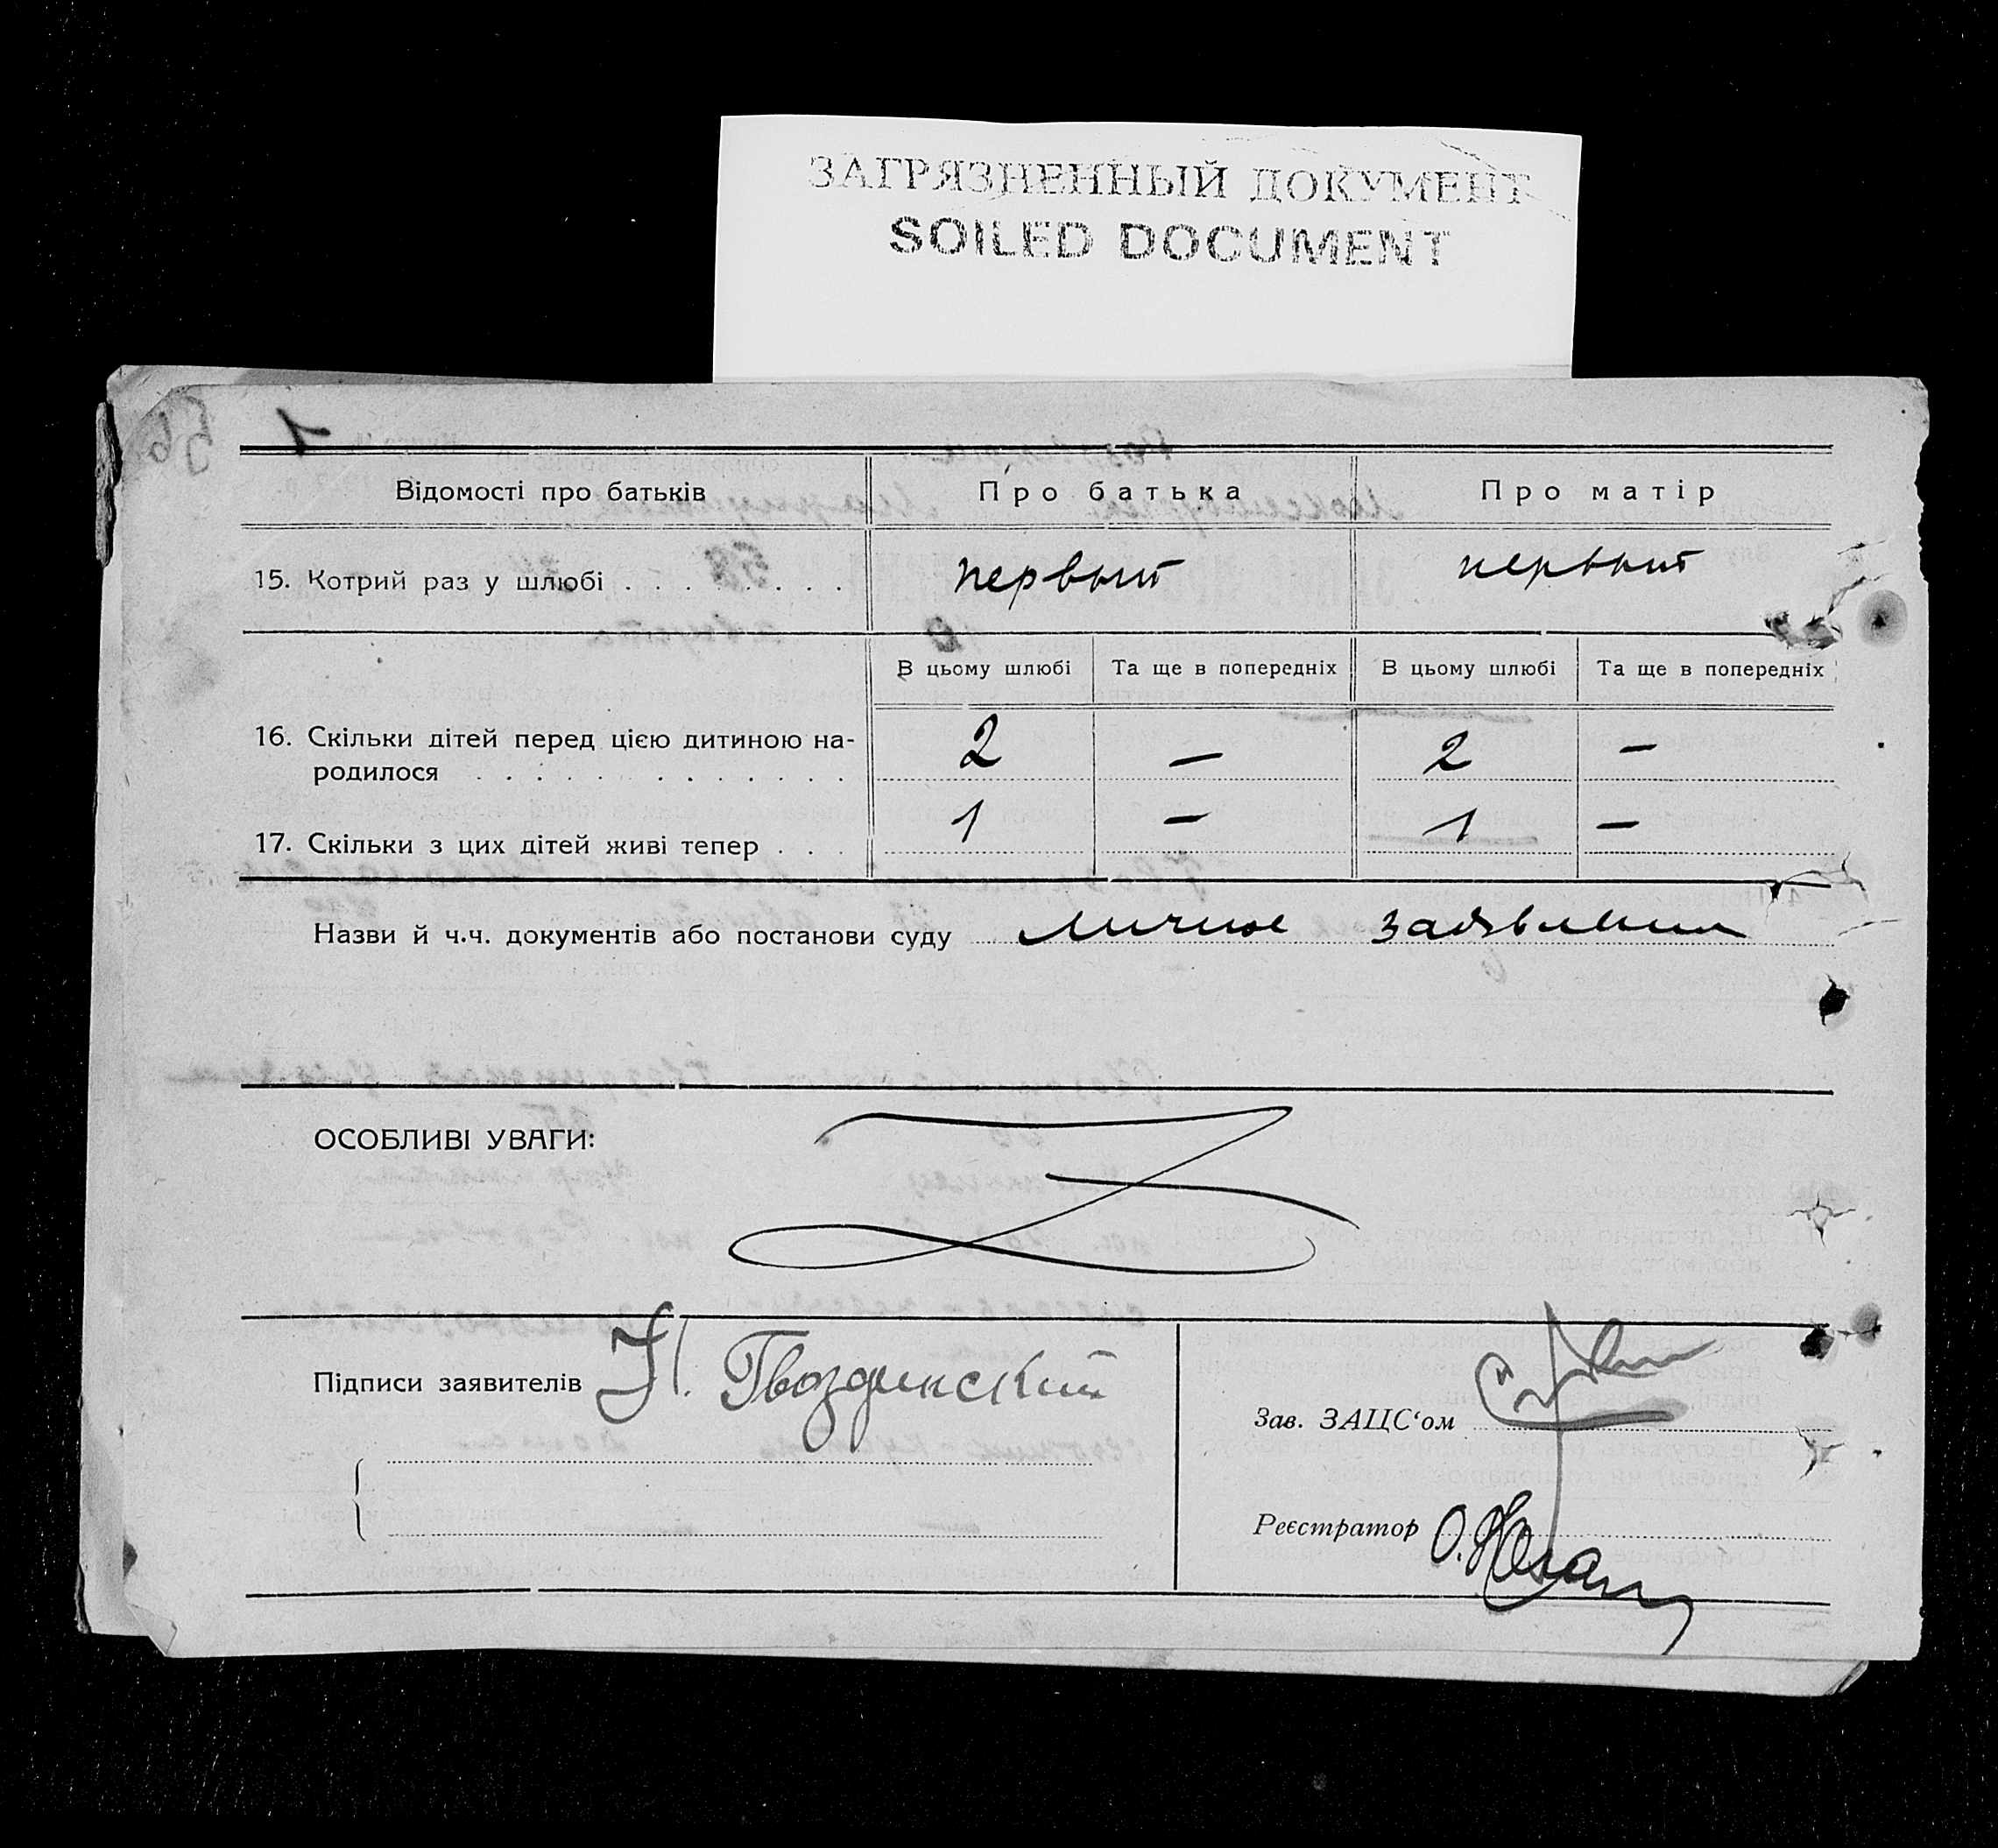 ЗАГРЯЗНЕННЫЙ ДОКУМЕНТ
SOILED DOCUMENT
Відомості про батьків Про батька Про матір
15. Котрий раз у шлюбі . . . . . . . . первый первый
В цьому шлюбі Та ще в попередніх В цьому шлюбі Та ще в попередніх
16. Скільки дітей перед цією дитиною на-
родилося . . . . . . . . . . . . 2 — 2 —
17. Скільки з цих дітей живі тепер . . . 1 — 1 —
Назви й ч.ч. документів або постанови суду личное заявление
ОСОБЛИВІ УВАГИ:
Підписи заявителів Гвоздинский
Зав. ЗАЦС‘ом
Реєстратор О.